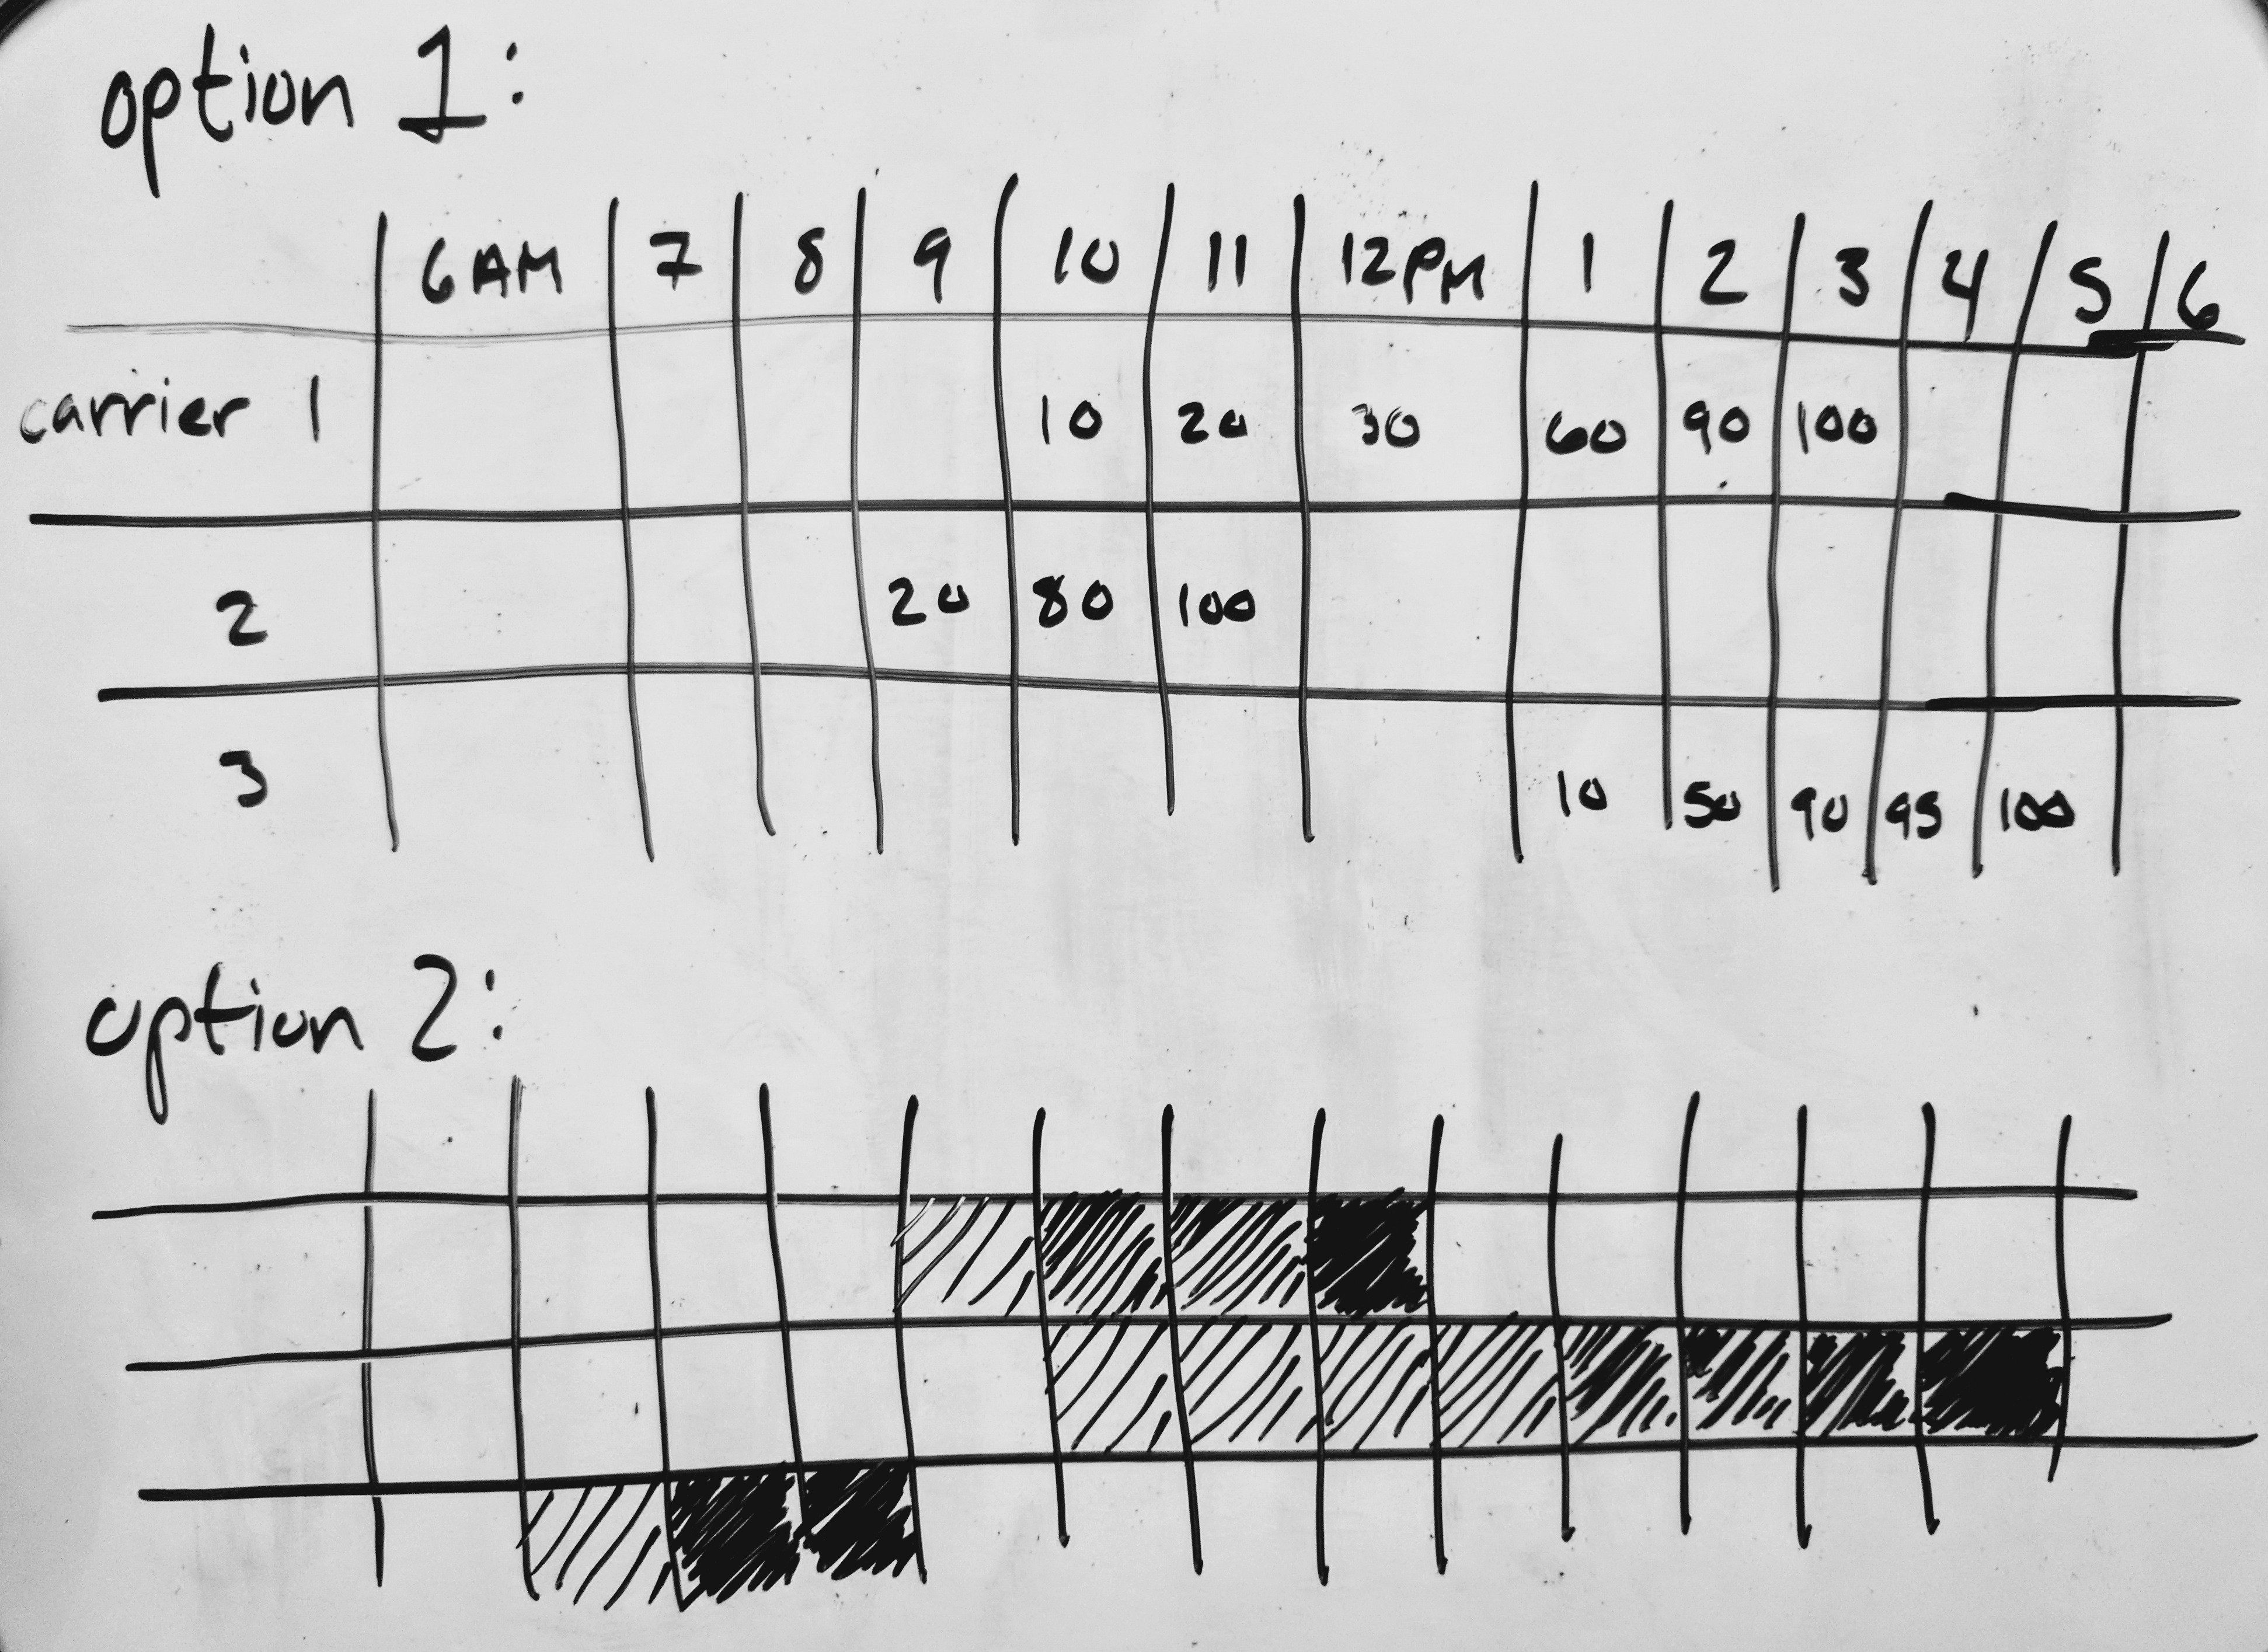 option 1:
6AM 7 8 9 10 11 12PM 1 2 3 4 5 6
carrier 1 10 20 30 60 90 100
2 20 80 100
3 10 50 90 95 100
option 2: